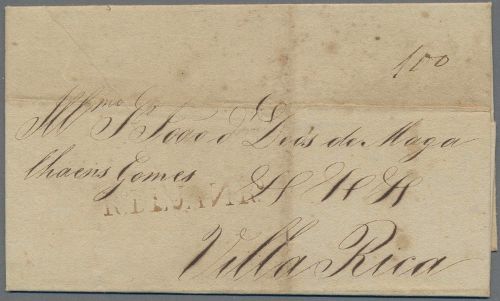 100
Illmo Sr João d' Dios de Maga
lhaens Gomes
Villa Rica